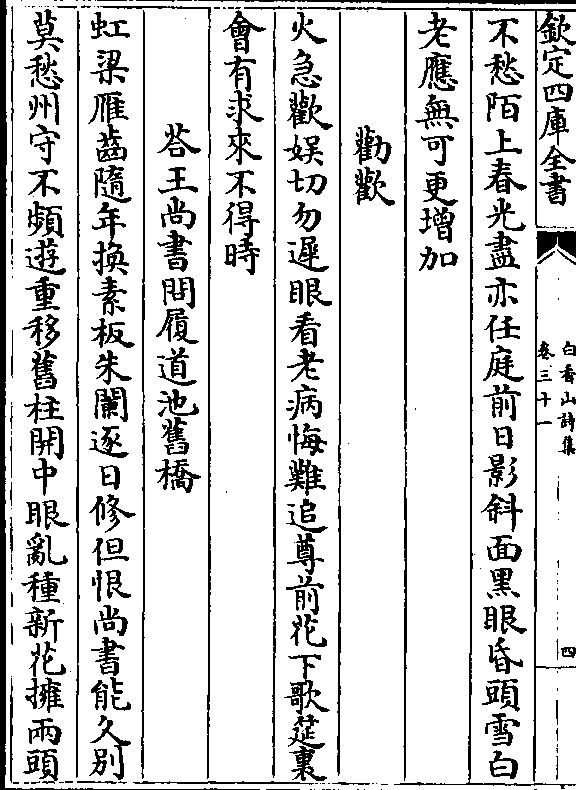 欽定四庫全書
白香山詩集
卷三十一
四
不愁陌上春光盡亦任庭前日影斜面黑眼昏頭雪白
老應無可更增加
勸歡
火急歡娛切勿遲眼看老病悔難追尊前花下歌筵裏
會有求來不得時
荅王尚書問履道池舊橋
虹梁雁齒隨年換素板朱闌逐日修但恨尚書能久別
莫愁州守不頻遊重移舊柱開中眼亂種新花擁兩頭